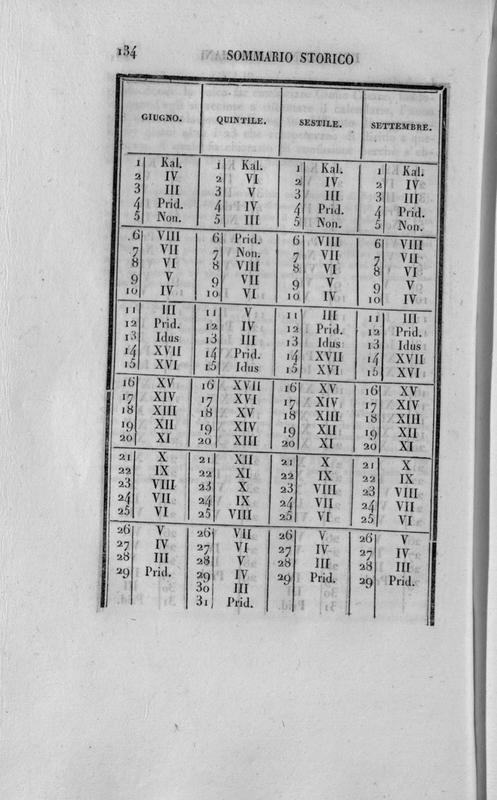 134 SOMMARIO STORICO
GIUGNO. QUINTILE. SESTILE. SETTEMBRE.
1 Kal. 1 Kal. 1 Kal. 1 Kal.
2 IV 2 VI 2 IV 2 IV
3 III 3 V 3 III 3 III
4 Prid. 4 IV 4 Prid. 4 Prid.
5 Non. 5 III 5 Non. 5 Non.
6 VIII 6 Prid. 6 VIII 6 VIII
7 VII 7 Non. 7 VII 7 VII
8 VI 8 VIII 8 VI 8 VI
9 V 9 VII 9 V 9 V
10 IV 10 VI 10 IV 10 IV
11 III 11 V 11 III 11 III
12 Prid. 12 IV 12 Prid. 12 Prid.
13 Idus 13 III 13 Idus 13 Idus
14 XVII 14 Prid. 14 XVII 14 XVII
15 XVI 15 Idus 15 XVI 15 XVI
16 XV 16 XVII 16 XV 16 XV
17 XIV 17 XVI 17 XIV 17 XIV
18 XIII 18 XV 18 XIII 18 XIII
19 XII 19 XIV 19 XII 19 XII
20 XI 20 XIII 20 XI 20 XI
21 X 21 XII 21 X 21 X
22 IX 22 XI 22 IX 22 IX
23 VIII 23 X 23 VIII 23 VIII
24 VII 24 IX 24 VII 24 VII
25 VI 25 VIII 25 VI 25 VI
26 V 26 VII 26 V 26 V
27 IV 27 VI 27 IV 27 IV
28 III 28 V 28 III 28 III
29 Prid. 29 IV 29 Prid. 29 Prid.
30 III
31 Prid.